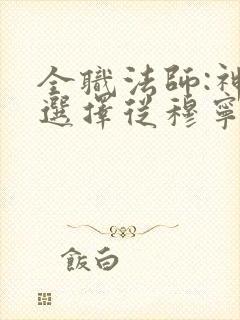 全職法師:神
選擇從穆寧
飯白